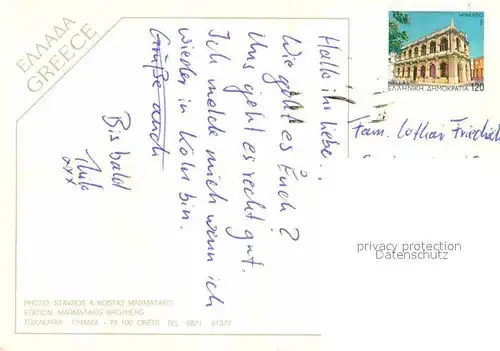 ΕΛΛΑΔΑ
GREECE
Hallo ihr liebe..,
Wie geht es Euch?
Uns geht es recht gut.
Ich melde mich wenn ich
wieder in Köln bin.
Grüße auch
Bis bald
xxx
ΗΡΑΚΛΕΙΟ
ΕΛΛΗΝΙΚΗ ΔΗΜΟΚΡΑΤΙΑ 120
Fam. Lothar Friedrich
privacy protection
www.oldthing.de
PHOTO: STAVROS & KOSTAS MARMATAKIS
EDITION: MARMATAKIS BROTHERS
TSIKALARIA CHANIA - 73 100 CRETE TEL. 0821 81377